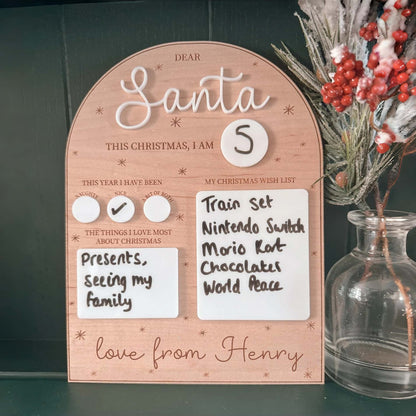 DEAR
Santa
THIS CHRISTMAS, I AM
5
THIS YEAR I HAVE BEEN
NAUGHTY NICE A BIT OF BOTH
✓
THE THINGS I LOVE MOST
ABOUT CHRISTMAS
Presents,
seeing my
family
MY CHRISTMAS WISH LIST
Train set
Nintendo Switch
Mario Kart
Chocolates
World Peace
love from Henry